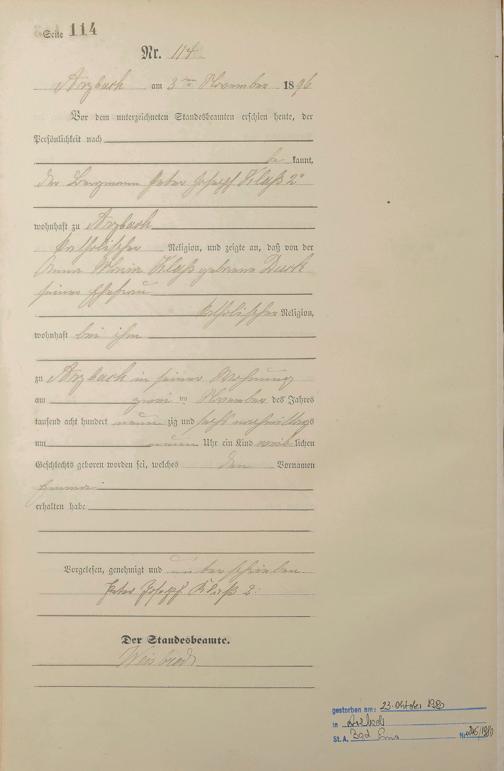 Seite 114
Nr. 114.
Arzbach am 3ten November 1896
Vor dem unterzeichneten Standesbeamten erschien heute, der
Persönlichkeit nach
be kannt,
der Bergmann Peter Joseph Klaß 2r
wohnhaft zu Arzbach
katholischer Religion, und zeigte an, daß von der
Anna Maria Klaß geborene
seiner Ehefrau
katholischer Religion,
wohnhaft bei ihm
zu Arzbach in seiner Wohnung
am zwei ten November des Jahres
tausend acht hundert neun zig und sechs nachmittags
um neun Uhr ein Kind weib lichen
Geschlechts geboren worden sei, welches den Vornamen
erhalten habe
Vorgelesen, genehmigt und unterschrieben
Peter Joseph Klaß 2.
Der Standesbeamte.
gestorben am: 23. Oktober
in Arzbach
St.A. Bad Ems Nr.